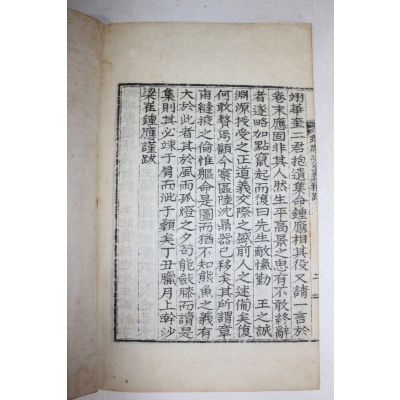 翊華奎二君抱遺集命鍾應相其役又請一言於
卷末應固非其人然生平高景之思有不敢終辭
者遂略加點竄起而復曰先生敵愾勤王之誠
淵源授受之正道義交際之盛前人之述備矣復
何敢贅焉顧今寰區陸沈鼎器已移矣其所謂章
甫縫掖之倫惟軀命是圖而猶不知熊魚之義有
大於此者其於風雨孤燈之夕苟能斂膝而讀是
集則其必竦于肩而泚于顙矣丁丑臘月上澣沙
梁崔鍾應謹跋